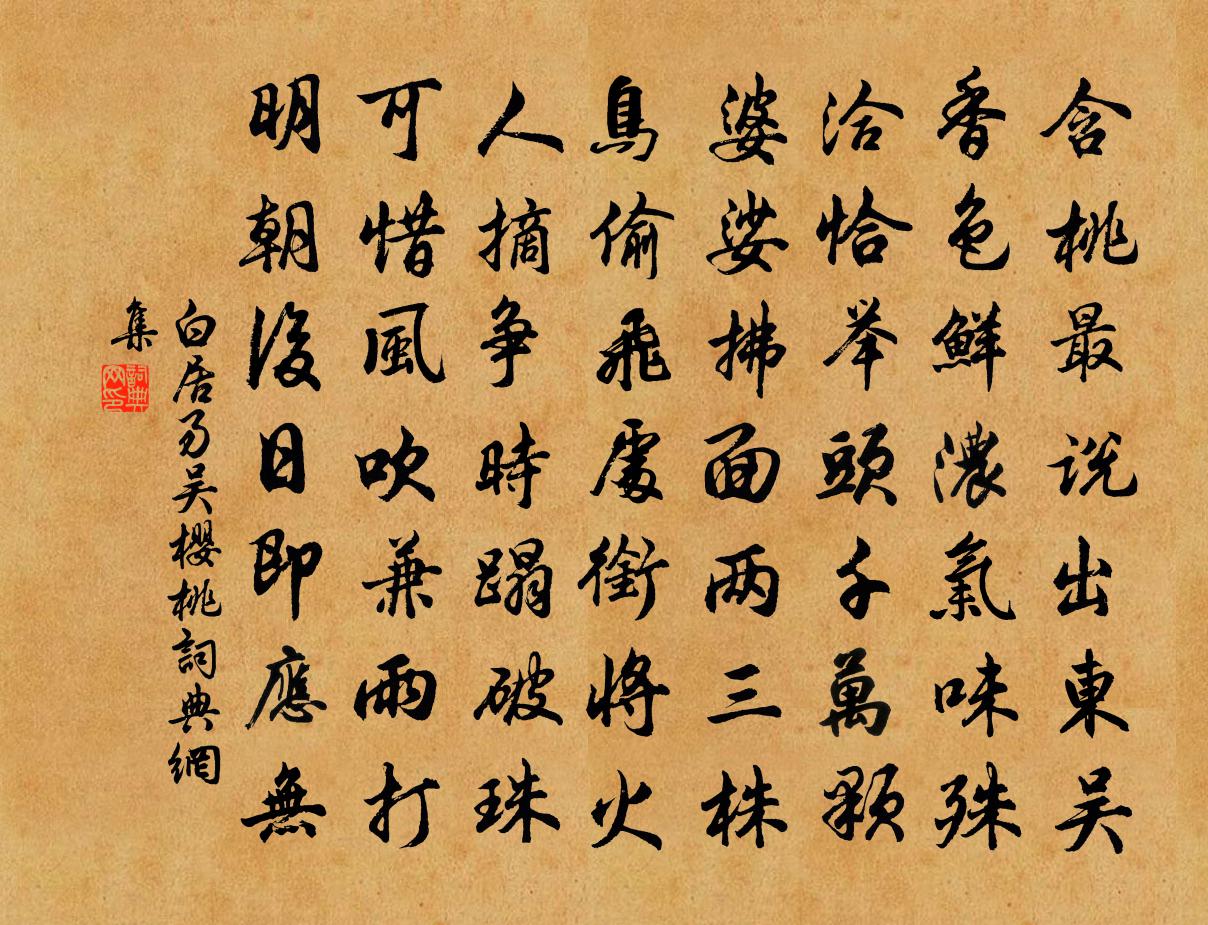 含桃最说出東吴
香色鮮濃氣味殊
洽恰举頭千萬顆
婆娑拂面两三株
鳥偷飛處銜將火
人摘争時蹋破珠
可惜風吹兼雨打
明朝後日即應無
白居易吴櫻桃詞典網
集
詞典网印